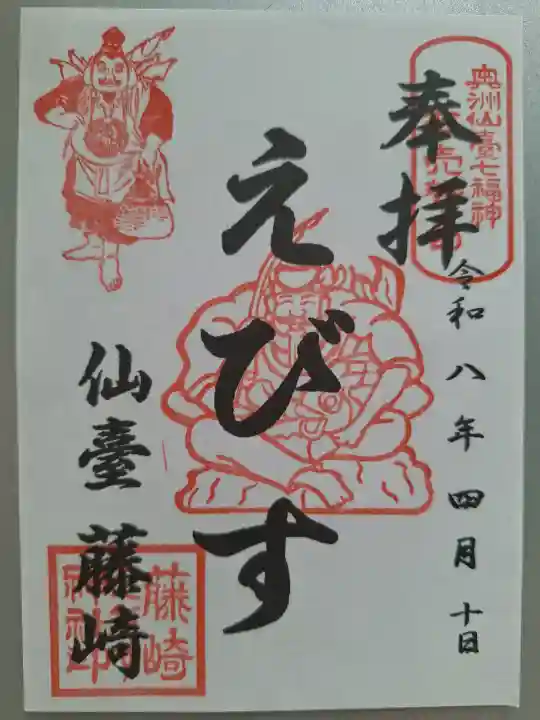 奉拝
奥洲仙臺七福神
令和八年四月十日
えびす
仙臺藤崎
藤崎